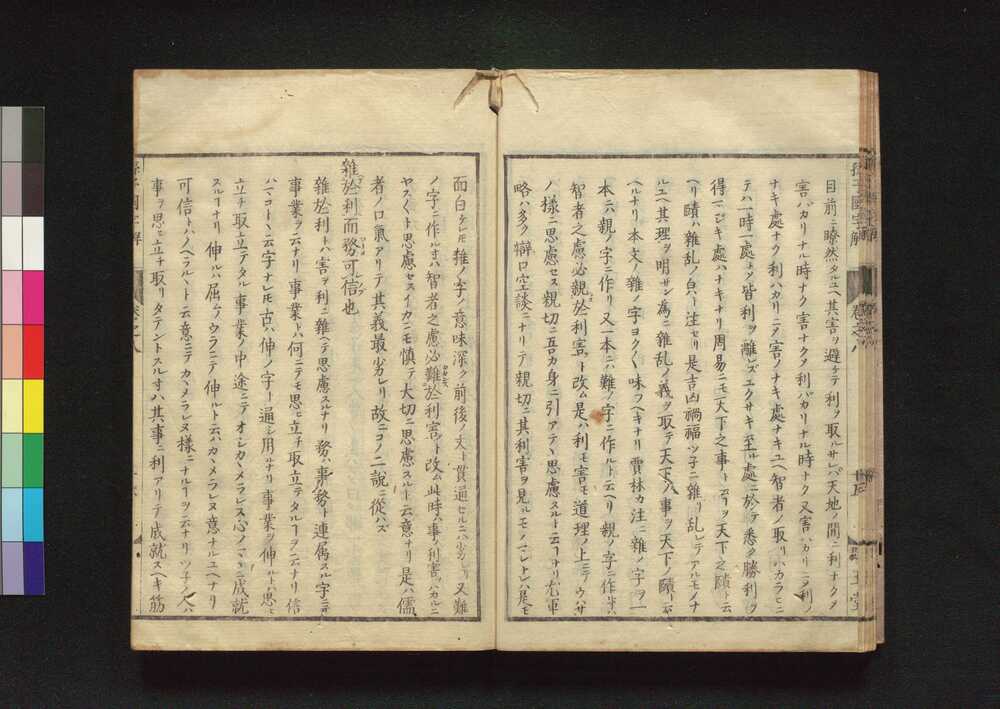 目前ニ瞭然タルユヘ其害ヲ避テ利ヲ取ルサレハ天地ノ間ニ利ナクヲ
害バカリナル時ナク害ナクヲ利バカリナル時ナク又害ハカリニヲ利ノ
ナキ處ナク利ハカリニヲ害ノナキ處ナキユヘ智者ノ取リハカラヒニ
テハ一時一處トヲ皆利ヲ離レズユクサキ至ル處ニ於テ悉ク勝利ヲ
得マジキ處ハナキナリ周易ニモ天下之事トヲ天下之賾ト云
ヘリ賾ハ雜乱ノ皃ト注セリ是吉凶禍福ツ子ニ雜リ乱レテアルモノナ
ルユヘ其理ヲ明サン為ニ雜乱ノ義ヲ取テ天下ノ事ヲ天下ノ賾ト云
ヘルナリ本文ノ雜ノ字ヨク〱味フヘキナリ賈林カ注ニ雜ノ字ヲ一
本ニハ親ノ字ニ作リ又一本ニハ難ノ字ニ作ルト云ヘリ親ノ字ニ作ル
智者之慮必親於利害ト改ム是ハ利モ害モ道理ノ上ニテウハ
ノ樣ニ思慮セス親切ニ吾カ身ニ引アテヽ思慮スルト云フナリ尤軍
略ハ多ク辯口空談ニナリテ親切ニ其利害ヲ見ルモノマレナレハ是モ
面白ケレモ雜ノ字ノ意味深ク前後ノ文ト貫通セルニハ劣レリ又難
ノ字ニ作ルハ智者之慮必難於利害ト改ム此時ハ事ノ利害ヲハカルニ
ヤス〱ト思慮セスイカニモ慎テ大切ニ思慮スルト云意ナリ是ハ儒
者ノ口氣アリテ其義最劣レリ故ニコノ二說ニ從ハズ
雜於利而務可信也
雜於利トハ害ヲ利ニ雜ヘテ思慮スルナリ務ハ事務ト連属スル字ニテ
事業ヲ云ナリ事業トハ何ニテモ思ヒ立チ取立テタルヲ云ナリ信
ハマコトヽ云字ナレモ古ハ伸ノ字ト通シ用ルナリ事業ヲ伸ルトハ思ヒ
立チ取立テタル事業ノ中途ニテオシカヾメラレス心ノマヽニ成就
スルナリ伸ルハ屈ムノウラニテ伸ルト云ハカヾメラレヌ意ナルユヘナリ
可信トハノヘラルヽト云意ニテカヾメラレヌ樣ニナルヲ云ナリツ子ノ人ハ
事ヲ思ヒ立チ取リタテントスルハ其事ニ利アリテ成就スヘキ筋